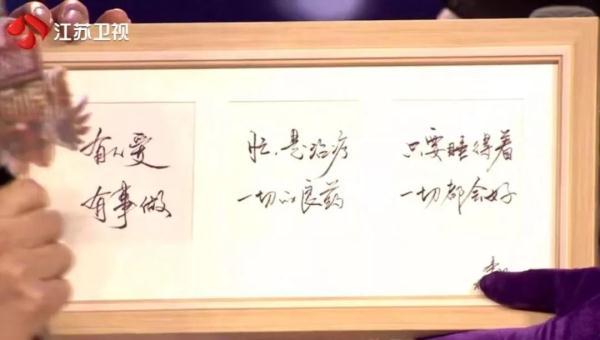 江苏卫视
有人爱
有事做
忙,是治疗
一切的良药
只要睡得着
一切都会好